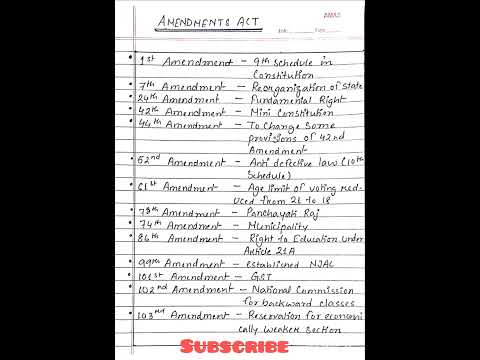 AMENDMENTS ACT
Date
• 1st Amendment - 9th Schedule in
Constitution
• 7th Amendment - Reorganization of State
• 24th Amendment - Fundamental Right
• 42th Amendment - Mini Constitution
• 44th Amendment - To Change Some
provisions of 42nd
Amendment
• 52nd Amendment - Anti defective law (10th
Schedule)
• 61st Amendment - Age limit of voting Red-
uced from 21 to 18
• 73th Amendment - Panchayat Raj
• 74th Amendment - Municipality
• 86th Amendment - Right to Education under
Article 21A
• 99th Amendment - established NJAC
• 101st Amendment - GST
• 102nd Amendment - National Commission
for backward classes
• 103rd Amendment - Reservation for economi
cally weaker section
SUBSCRIBE